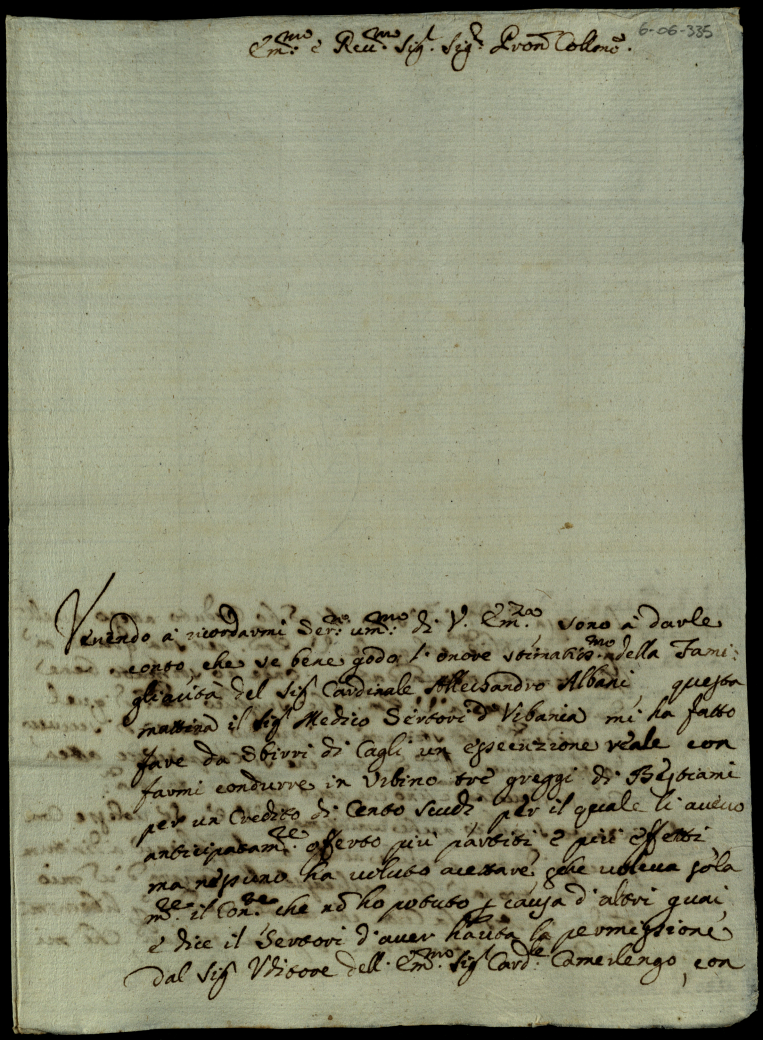 6-06-335
Em.mo e Reu.mo Sig.r Sig.r Pron Collmo.
Venendo a ricordarmi Ser.re um.mo di V. Em.za sono a darle
conto, che se bene godo l'onore stimatis.mo della Fami:
gliarità del Sig.r Cardinale Allessandro Albani, questa
mattina il Sig.r Medico Sertori d'Vrbania mi ha fatto
fare da Sbirri di Cagli un essecuzione reale con
farmi condurre in Vrbino tre greggi di Bestiami
per un Credito di Cento Scudi per il quale li avevo
anticipatam.te offerto più partiti e più effetti
ma nessuno ha voluto accettare, che voleva sola
m.te il Con.te che nō ho potuto p causa d'altri guai,
e dice il Sertori d'aver hauta la permissione
dal Sig.r Vditore dell'Em.mo Sig.r Card.le Camerlengo, con